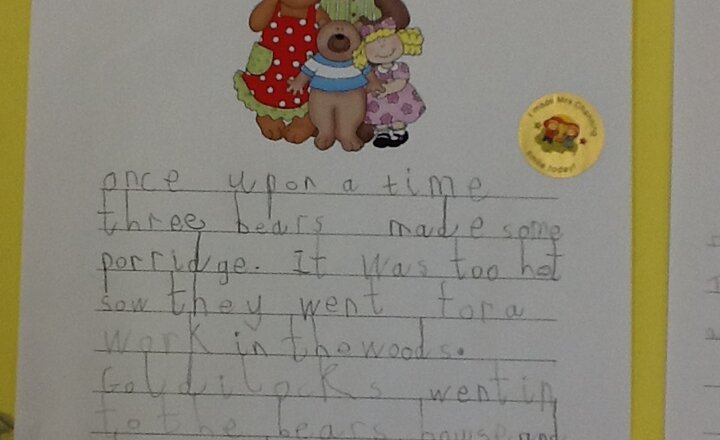 I made Mrs Channing
smile today!
once upon a time
three bears made some
porridge. It was too hot
sow they went for a
work in the woods.
Goldilocks went in
to the bears house and